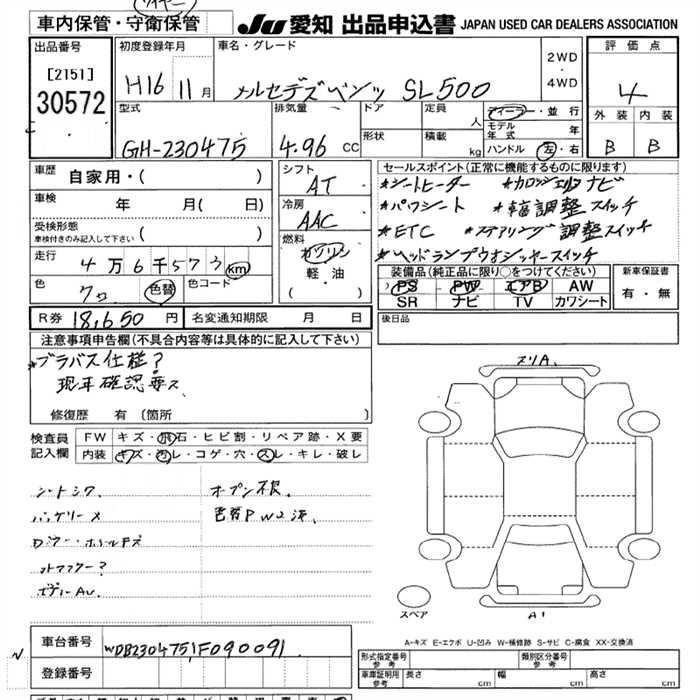 車内保管・守衛保管
JU 愛知 出品申込書 JAPAN USED CAR DEALERS ASSOCIATION
出品番号
[2151]
30572
初度登録年月
H16 11月
車名・グレード
メルセデスベンツ SL500
2WD
・
4WD
評価点
4
外装 内装
B B
型式
GH-230475
排気量
4.96 cc
ドア
形状
定員 人
積載 kg
ディーラー・並行
モデル年式 年
ハンドル 左・右
車歴
自家用・( )
車検 年 月( 日)
受検形態
車検付きのみ記入して下さい ( )
走行 4万6千573 km
色 クロ 色替 色コード
シフト
AT
冷房
AAC
燃料
ガソリン
軽・油
( )
セールスポイント(正常に機能するものに限ります)
*シートヒーター
*パワシート
*ETC *ステアリング調整スイッチ
*ヘッドランプウオッシャースイッチ
装備品(純正品に限り○をつけてください)
PS PW エアB AW
SR ナビ TV カワシート
新車保証書
有・無
R券 18,650円
名変通知期限 月 日
後日品
注意事項申告欄(不具合内容等は具体的に記入して下さい)
*ブラバス仕様?
現車確認要ス
修復歴 有(箇所 )
検査員
記入欄
FW キズ・飛石・ヒビ割・リペア跡・X要
内装 キズ・汚レ・コゲ・穴・スレ・キレ・破レ
シートシワ
オープン不良
バッテリーメ
ボデーAU
スリA
A1
スペア
A-キズ E-エクボ U-凹み W-補修跡 S-サビ C-腐食 XX-交換済
車台番号 WDB2304751F090091
登録番号
型式指定番号 参考
類別区分番号 参考
車庫証明用 参考 長さ cm 幅 cm 高さ cm